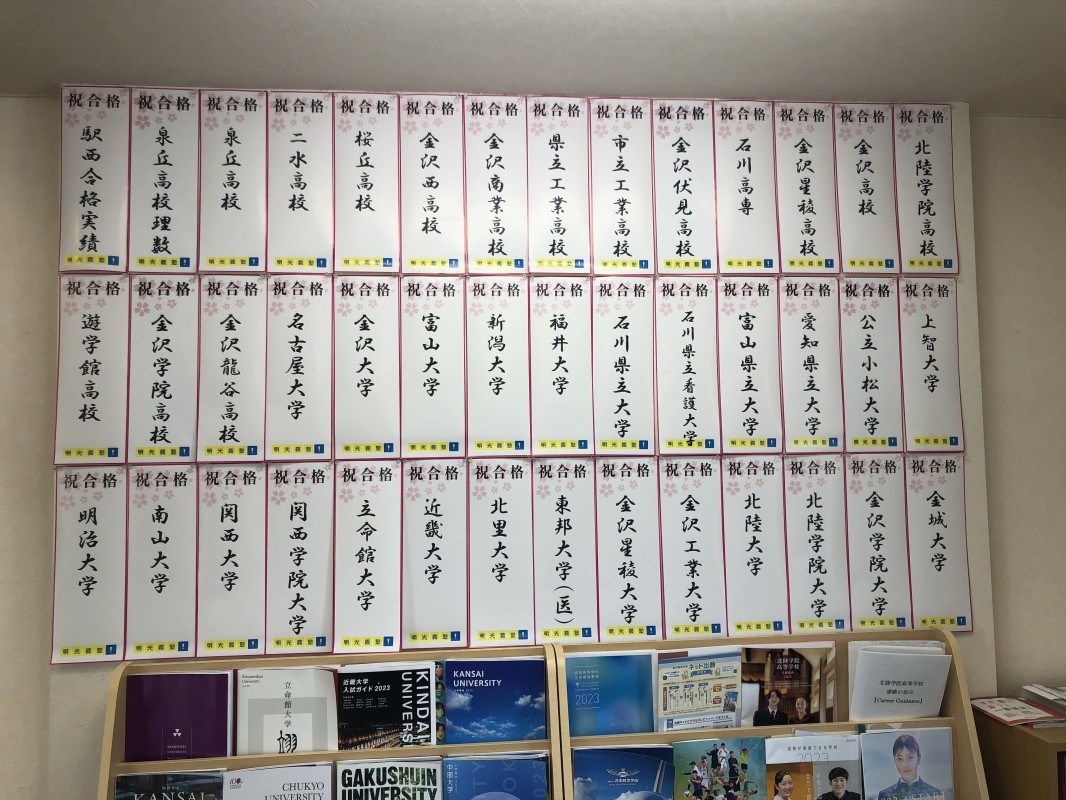 祝合格
駅西合格実績
明光義塾
祝合格
泉丘高校理数
明光義塾
祝合格
泉丘高校
明光義塾
祝合格
二水高校
明光義塾
祝合格
桜丘高校
明光義塾
祝合格
金沢西高校
明光義塾
祝合格
金沢商業高校
明光義塾
祝合格
県立工業高校
明光義塾
祝合格
市立工業高校
明光義塾
祝合格
金沢伏見高校
明光義塾
祝合格
石川高専
明光義塾
祝合格
金沢星稜高校
明光義塾
祝合格
金沢高校
明光義塾
祝合格
北陸学院高校
明光義塾
祝合格
遊学館高校
明光義塾
祝合格
金沢学院高校
明光義塾
祝合格
金沢龍谷高校
明光義塾
祝合格
名古屋大学
明光義塾
祝合格
金沢大学
明光義塾
祝合格
富山大学
明光義塾
祝合格
新潟大学
明光義塾
祝合格
福井大学
明光義塾
祝合格
石川県立大学
明光義塾
祝合格
石川県立看護大学
明光義塾
祝合格
富山県立大学
明光義塾
祝合格
愛知県立大学
明光義塾
祝合格
公立小松大学
明光義塾
祝合格
上智大学
明光義塾
祝合格
明治大学
明光義塾
祝合格
南山大学
明光義塾
祝合格
関西大学
明光義塾
祝合格
関西学院大学
明光義塾
祝合格
立命館大学
明光義塾
祝合格
近畿大学
明光義塾
祝合格
北里大学
明光義塾
祝合格
東邦大学(医)
明光義塾
祝合格
金沢星稜大学
明光義塾
祝合格
金沢工業大学
明光義塾
祝合格
北陸大学
明光義塾
祝合格
北陸学院大学
明光義塾
祝合格
金沢学院大学
明光義塾
祝合格
金城大学
明光義塾
Ritsumeikan
University
立命館大学
近畿大学
入試ガイド2023
KINDAI
UNIVERS
KANSAI
UNIVERSITY
2023
ネット出願
北陸学院
高等学校
北陸学院高等学校
進路の歩み
【Career Guidance】
KANSAI
CHUKYO
UNIVERSITY
GAKUSHUIN
UNIVERSITY
中部大学
2023
START